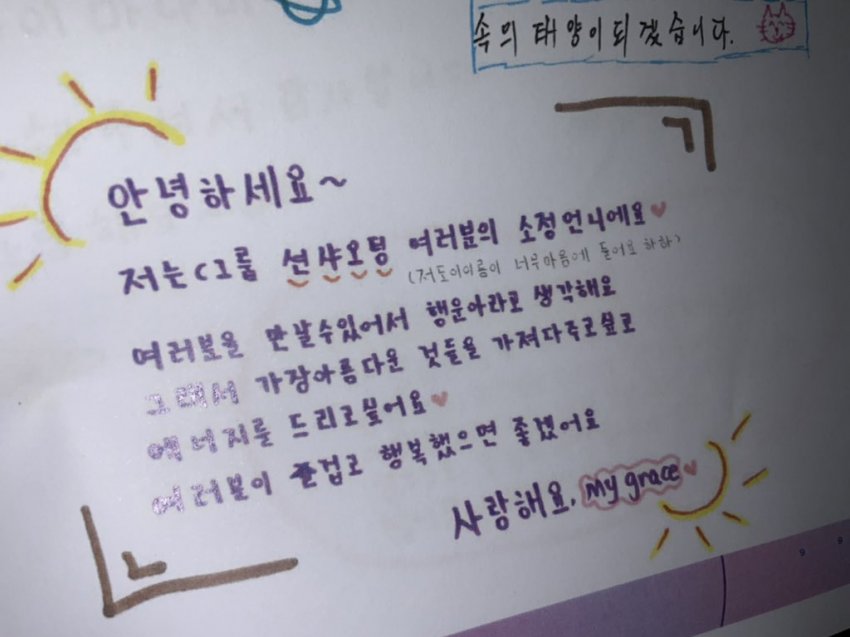 속의 태양이되겠습니다.
안녕하세요~
저는C1룸 션샤오팅 여러분의 소정언니에요
(저도이이름이 너무마음에 들어요 하하)
여러분을 만날수있어서 행운아라고 생각해요
그래서 가장아름다운 것들을 가져다주고싶고
에너지를 드리고싶어요
여러분이 즐겁고 행복했으면 좋겠어요
사랑해요. My grace